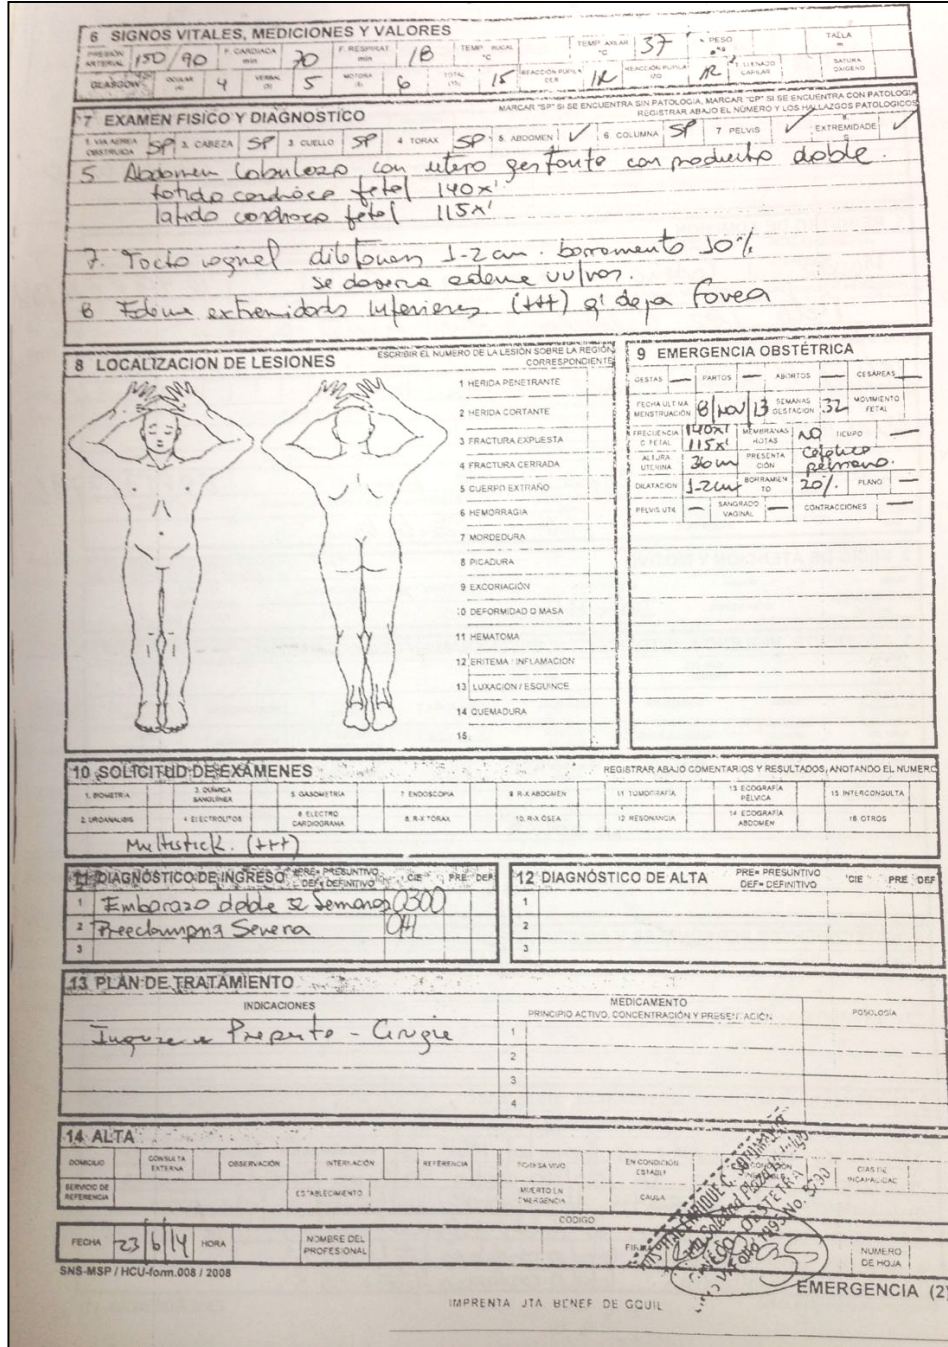 6 SIGNOS VITALES, MEDICIONES Y VALORES
PRESIÓN ARTERIAL 150/90 F. CARDIACA min 70 F. RESPIRAT. min 18 TEMP BUCAL °C TEMP AXILAR °C 37 PESO TALLA m
GLASGOW OCULAR (4) 4 VERBAL (5) 5 MOTORA (6) 6 TOTAL (15) 15 REACCIÓN PUPILA DER REACCIÓN PUPILA IZQ T. LLENADO CAPILAR SATURA OXIGENO
7 EXAMEN FISICO Y DIAGNOSTICO MARCAR "SP" SI SE ENCUENTRA SIN PATOLOGIA, MARCAR "CP" SI SE ENCUENTRA CON PATOLOGIA
REGISTRAR ABAJO EL NÚMERO Y LOS HALLAZGOS PATOLOGICOS
1. VIA AEREA OBSTRUIDA SP 2. CABEZA SP 3 CUELLO SP 4 TORAX SP 5. ABDOMEN ✓ 6. COLUMNA SP 7 PELVIS ✓ 8. EXTREMIDADES ✓
5 Abdomen con utero gestante con producto doble.
latido cardiaco fetal 140x'
latido cardiaco fetal 115x'
7. Tacto vaginal dilatacion 1-2 cm. borramento 10%
se edema
8 Edema extremidades inferiores (+++) q' deja fovea
8 LOCALIZACION DE LESIONES ESCRIBIR EL NUMERO DE LA LESIÓN SOBRE LA REGIÓN CORRESPONDIENTE
1 HERIDA PENETRANTE
2 HERIDA CORTANTE
3 FRACTURA EXPUESTA
4 FRACTURA CERRADA
5 CUERPO EXTRAÑO
6 HEMORRAGIA
7 MORDEDURA
8 PICADURA
9 EXCORIACIÓN
10 DEFORMIDAD O MASA
11 HEMATOMA
12 ERITEMA / INFLAMACION
13 LUXACION / ESGUINCE
14 QUEMADURA
15
9 EMERGENCIA OBSTÉTRICA
GESTAS — PARTOS — ABORTOS — CESÁREAS —
FECHA ULTIMA MENSTRUACIÓN 8/NOV/13 SEMANAS GESTACION 32 MOVIMIENTO FETAL
FRECUENCIA C FETAL 140x' 115x' MEMBRANAS ROTAS NO TIEMPO —
ALTURA UTERINA 36 cm PRESENTACIÓN
DILATACION 1-2cm BORRAMIENTO 20% PLANO —
PELVIS UTIL — SANGRADO VAGINAL — CONTRACCIONES —
10 SOLICITUD DE EXÁMENES REGISTRAR ABAJO COMENTARIOS Y RESULTADOS, ANOTANDO EL NUMERO
1. BIOMETRIA 3. QUÍMICA SANGUÍNEA 5. GASOMETRIA 7 ENDOSCOPIA 9 R-X ABDOMEN 11 TOMOGRAFIA 13 ECOGRAFÍA PÉLVICA 15 INTERCONSULTA
2. UROANALISIS 4 ELECTROLITOS 6 ELECTRO CARDIOGRAMA 8. R-X TORAX 10. R-X ÓSEA 12 RESONANCIA 14 ECOGRAFÍA ABDOMEN 16 OTROS
Multistick. (+++)
11 DIAGNÓSTICO DE INGRESO PRE= PRESUNTIVO DEF= DEFINITIVO CIE PRE DEF
1 Embarazo doble 32 Semanas O300
2 Preeclampsia Severa
3
12 DIAGNÓSTICO DE ALTA PRE= PRESUNTIVO DEF= DEFINITIVO CIE PRE DEF
1
2
3
13 PLAN DE TRATAMIENTO
INDICACIONES MEDICAMENTO PRINCIPIO ACTIVO, CONCENTRACIÓN Y PRESENTACIÓN POSOLOGÍA
Preparto - Cirugia
1
2
3
4
14 ALTA
DOMICILIO CONSULTA EXTERNA OBSERVACIÓN INTERNACIÓN REFERENCIA EGRESA VIVO EN CONDICIÓN ESTABLE DIAS DE INCAPACIDAD
SERVICIO DE REFERENCIA ESTABLECIMIENTO MUERTO EN EMERGENCIA CAUSA
CODIGO
FECHA 23/6/14 HORA NOMBRE DEL PROFESIONAL NUMERO DE HOJA
SNS-MSP / HCU-form.008 / 2008
EMERGENCIA (2)
IMPRENTA JTA BENEF DE GQUIL